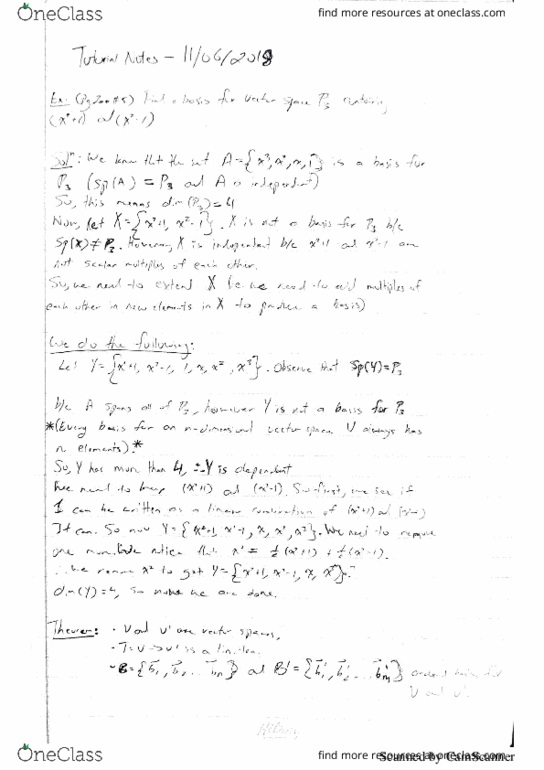 OneClass
find more resources at oneclass.com
Tutorial Notes - 11/06/2018
Ex: Find a basis for vector space P3 containing
(x²+1) and (x²-1)
Sol": We know that the set A={x³,x²,x,1} is a basis for
P3 (Sp(A) = P3 and A is independent)
So, this means dim(P3)=4
Now, let X={x²+1, x²-1}. X is not a basis for P3 b/c
Sp(X)≠P3. However, X is independent b/c x²+1 and x²-1 are
not scalar multiples of each other.
So, we need to extend X we need to add multiples of
each other in new elements in X to produce a basis)
We do the following:
Let Y={x²+1, x²-1, 1, x, x², x³}. Observe that Sp(Y)=P3
b/c A spans all of P3, however Y is not a basis for P3
*(Every basis for an n-dimensional vector space V always has
n elements).*
So, Y has more than 4, ∴ Y is dependent
We need to keep (x²+1) and (x²-1). So first, we see if
1 can be written as a linear combination of (x²+1) and (x²-1)
It can. So now Y={x²+1, x²-1, x, x², x³}. We need to remove
one more. notice that x² = ½(x²+1) + ½(x²-1).
∴ we remove x² to get Y={x²+1, x²-1, x, x³}.
dim(Y)=4, so we are done.
Theorem: · V and V' are vector spaces,
· T=V→V' is a
· B={b1, b2, ... bn} and B'={b1', b2', ... bm'} bases for
V and V'
OneClass
find more resources at oneclass.com
Scanned by CamScanner